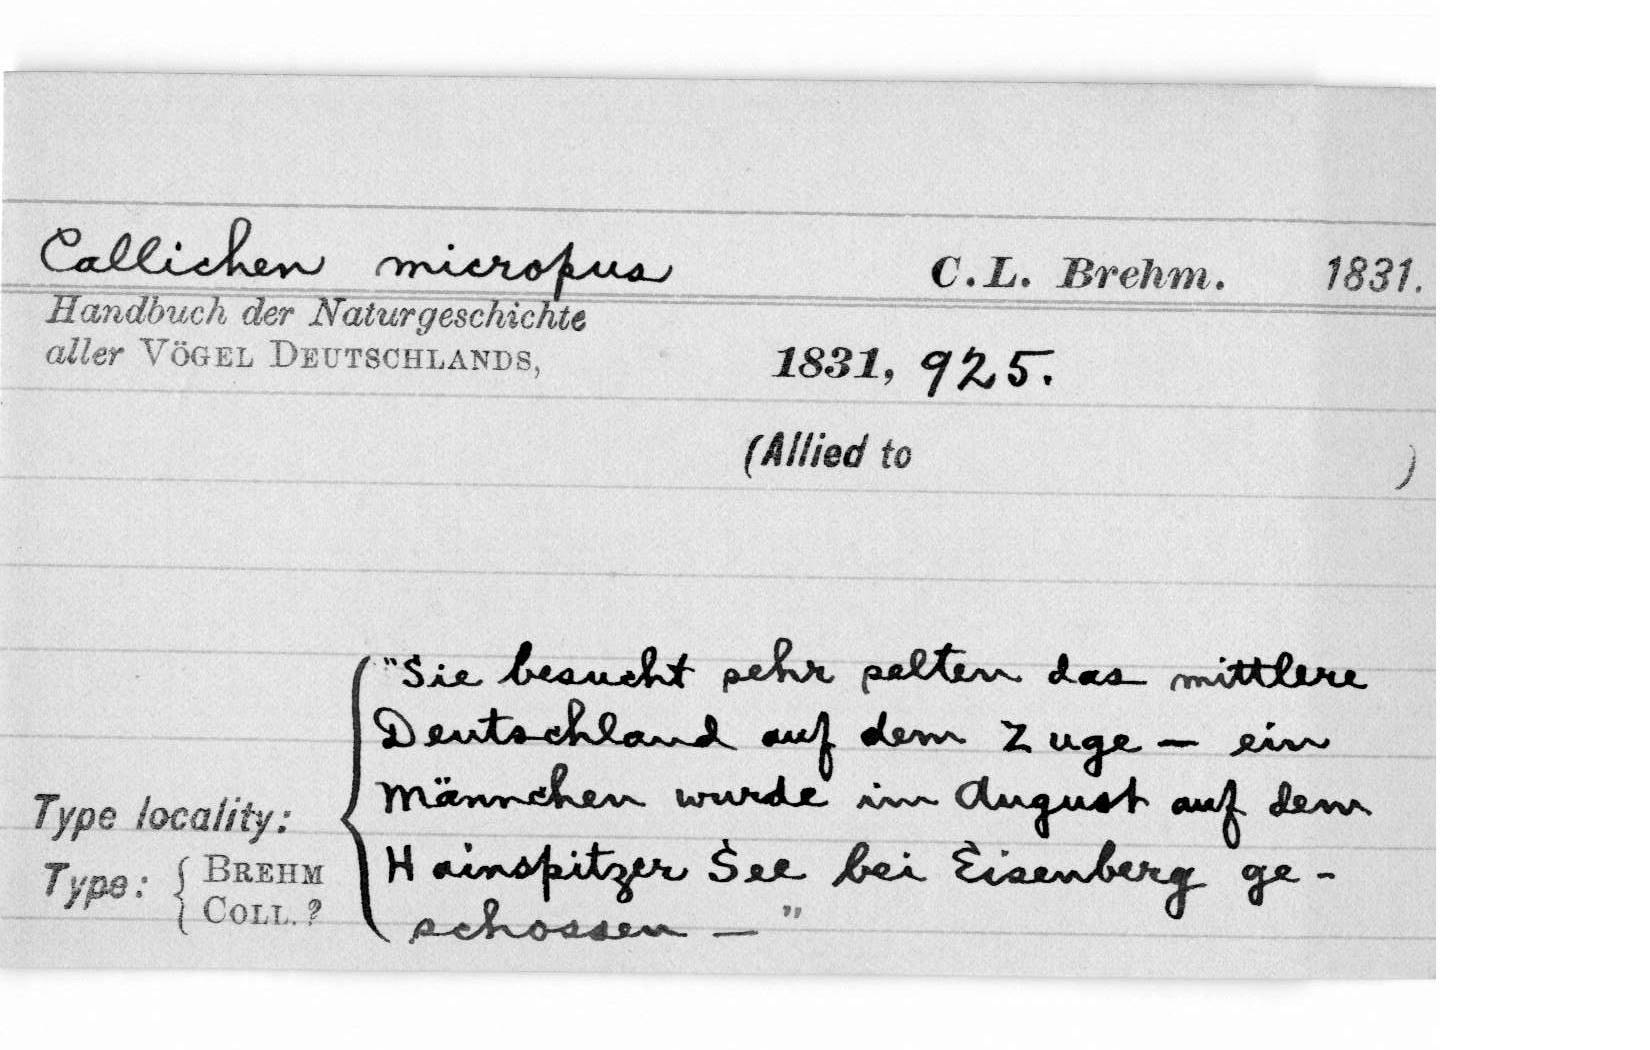 Callichen micropus C.L. Brehm. 1831.
Handbuch der Naturgeschichte
aller VÖGEL DEUTSCHLANDS, 1831, 925.
(Allied to )
"Sie besucht sehr selten das mittlere
Deutschland auf dem Zuge — ein
Männchen wurde im August auf dem
Type locality:
Hainspitzer See bei Eisenberg ge-
Type: { BREHM
COLL. ?
schossen — "